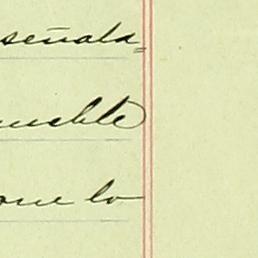 señala=
mueble
que lo